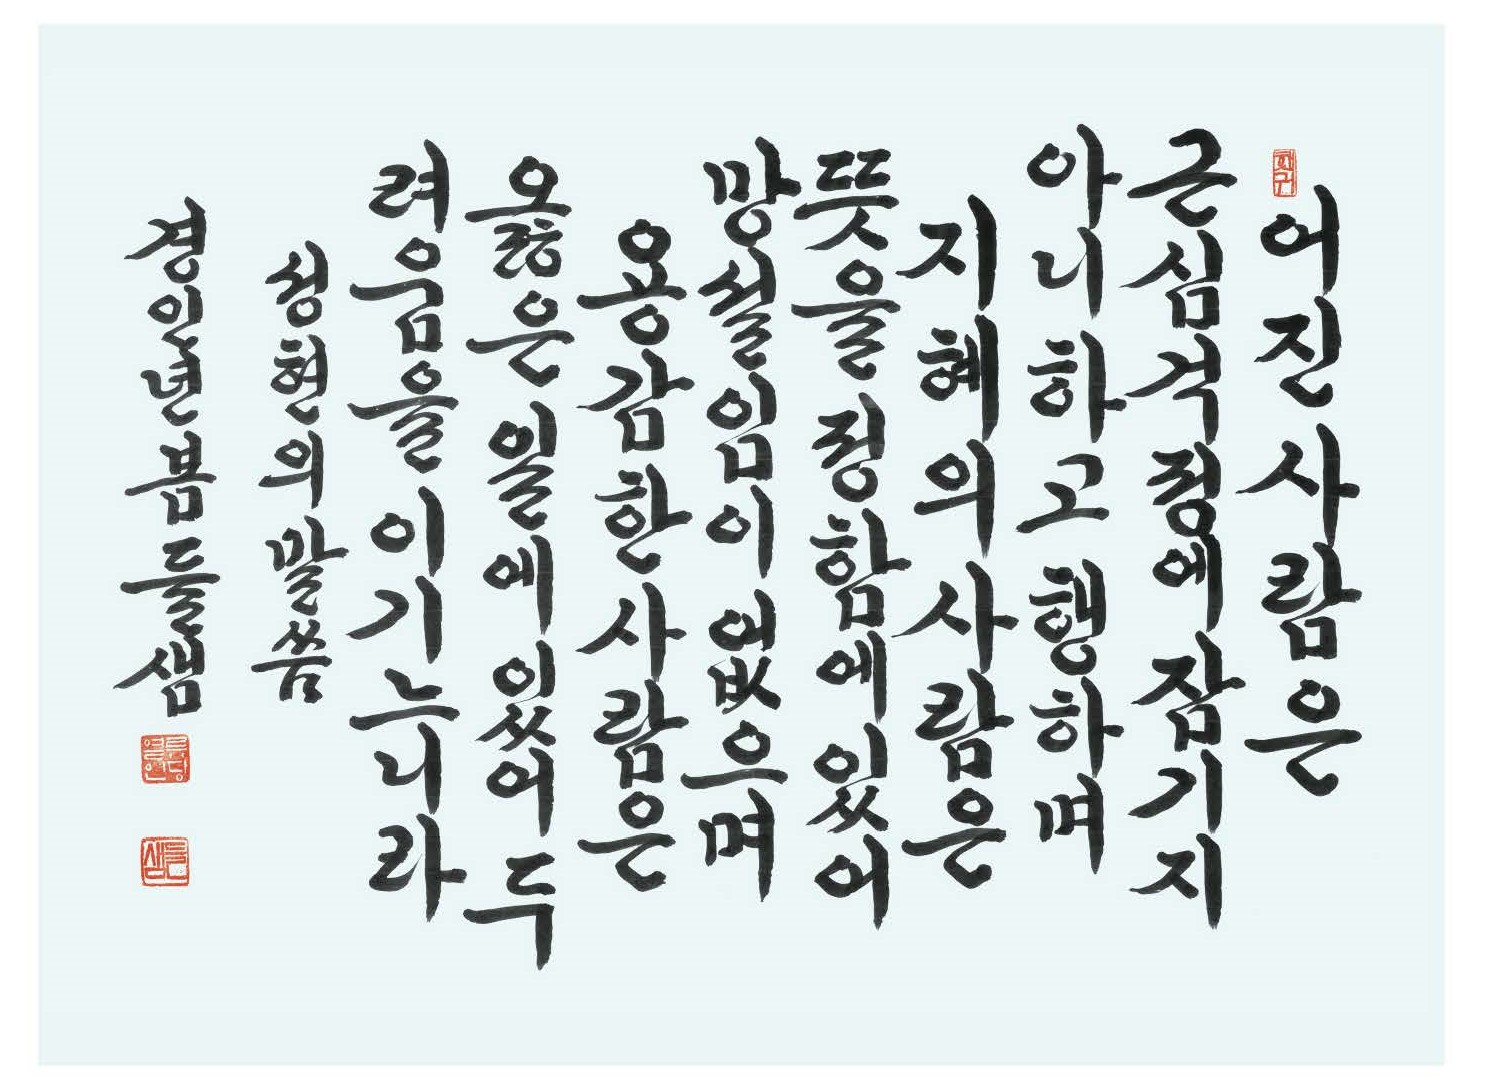 어진 사람은
근심 걱정에 잠기지
아니하고 행하며
지혜의 사람은
뜻을 정함에 있어
망설임이 없으며
용감한 사람은
옳은 일에 있어 두
려움을 이기느니라
성현의 말씀
경인년 봄 들샘
들샘